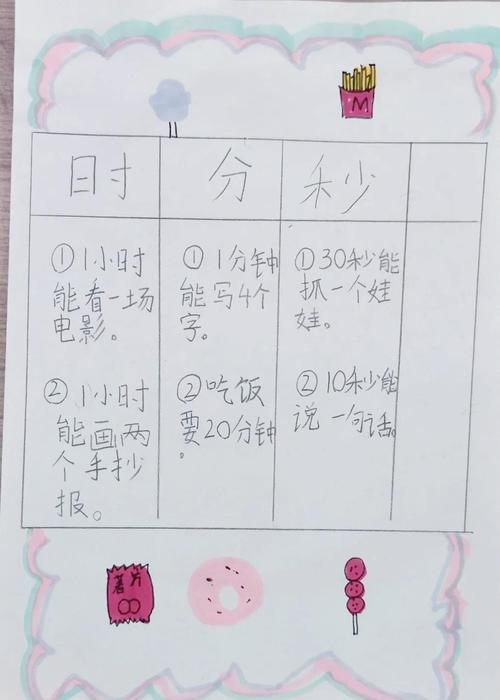 M
时 分 秒
①1小时
能看一场
电影。
②1小时
能画两
个手抄
报。
①1分钟
能写4个
字。
②吃饭
要20分钟
。
①30秒能
抓一个娃
娃。
②10秒能
说一句话。
薯片